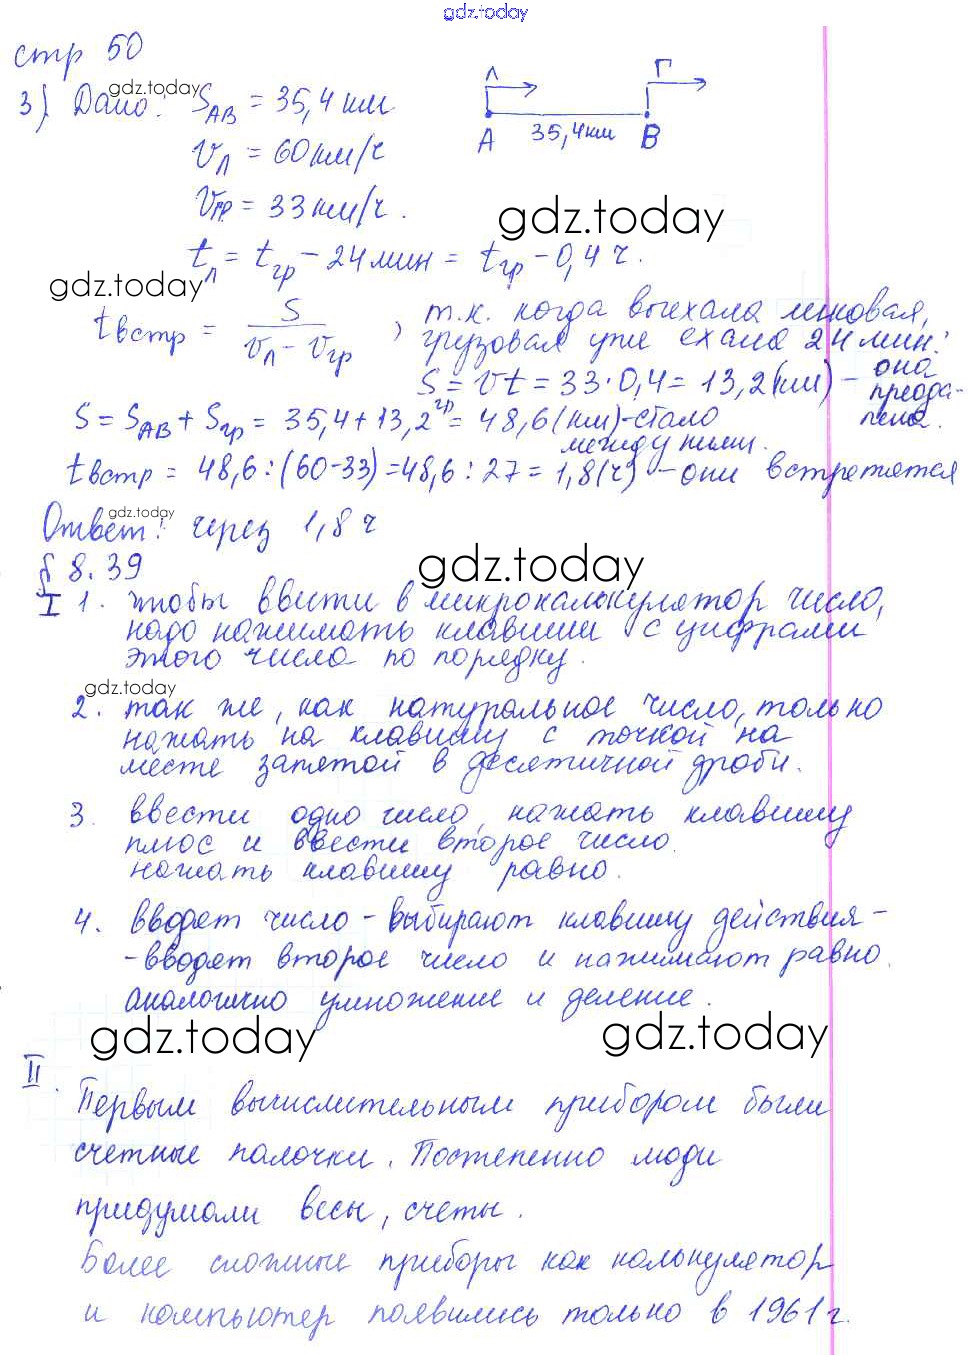 gdz.today
стр 50
gdz.today
3) Дано: S_AB = 35,4 км
Л Г
A 35,4км B
V_Л = 60 км/ч
V_гр = 33 км/ч.
gdz.today
t_Л = t_гр - 24 мин = t_гр - 0,4 ч.
gdz.today
t встр = S / (V_Л - V_гр) , т.к. когда выехала легковая,
грузовая уже ехала 24 мин:
S_гр = Vt = 33·0,4 = 13,2(км) - она
преодолела.
S = S_AB + S_гр = 35,4+13,2 = 48,6(км)-стало
между ними.
t встр = 48,6:(60-33)=48,6:27=1,8(ч) - они встретятся
gdz.today
Ответ: через 1,8 ч
§ 8.39
gdz.today
I 1. чтобы ввести в микрокалькулятор число,
надо нажимать клавиши с цифрами
этого числа по порядку.
gdz.today
2. так же, как натуральное число, только
нажать на клавишу с точкой на
месте запятой в десятичной дроби.
3. ввести одно число, нажать клавишу
плюс и ввести второе число.
нажать клавишу равно.
4. вводят число - выбирают клавишу действия-
-вводят второе число и нажимают равно.
аналогично умножение и деление.
gdz.today
gdz.today
II.
Первым вычислительным прибором были
счетные палочки. Постепенно люди
придумали весы, счеты.
Более сложные приборы как калькулятор
и компьютер появились только в 1961г.